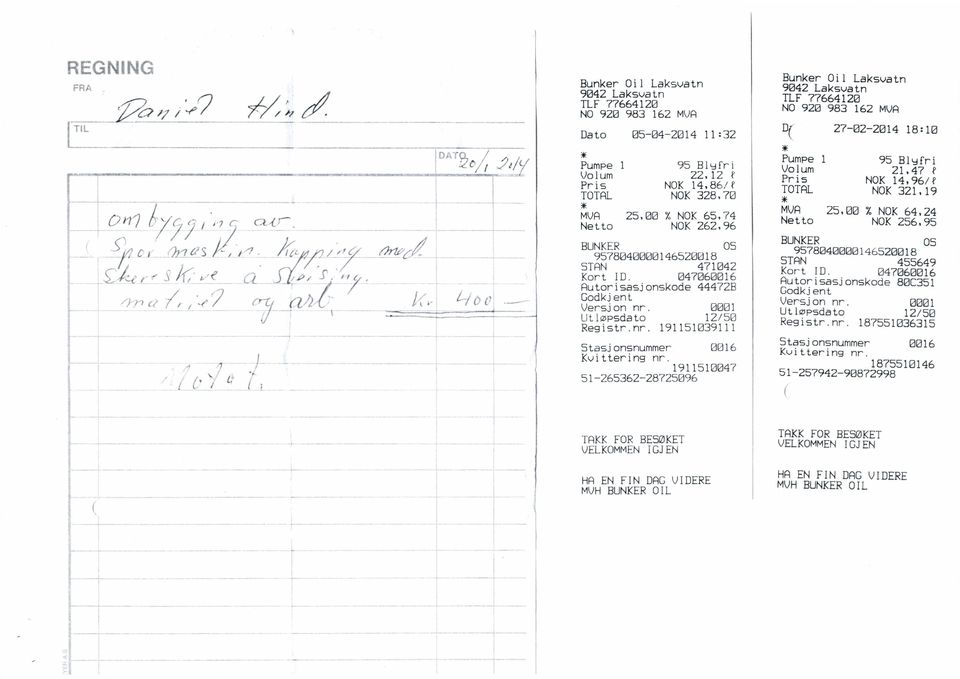 REGNING
FRA
Daniel Hind.
TIL
DATO
20/1 2014
ombygging av
Spor maskin. Kapping med
Skereskive å Sleising.
matriel og arb. Kr 400 —
Bunker Oil Laksvatn
9042 Laksvatn
TLF 77664120
NO 920 983 162 MVA
Dato 05-04-2014 11:32
*
Pumpe 1 95 Blyfri
Volum 22,12 ℓ
Pris NOK 14,86/ℓ
TOTAL NOK 328,70
*
MVA 25,00 % NOK 65,74
Netto NOK 262,96
BUNKER OS
9578040000146520018
STAN 471042
Kort ID. 047060016
Autorisasjonskode 44472B
Godkjent
Versjon nr. 0001
Utløpsdato 12/50
Registr.nr. 191151039111
Stasjonsnummer 0016
Kvittering nr.
1911510047
51-265362-28725096
TAKK FOR BESØKET
VELKOMMEN IGJEN
HA EN FIN DAG VIDERE
MVH BUNKER OIL
Bunker Oil Laksvatn
9042 Laksvatn
TLF 77664120
NO 920 983 162 MVA
27-02-2014 18:10
*
Pumpe 1 95 Blyfri
Volum 21,47 ℓ
Pris NOK 14,96/ℓ
TOTAL NOK 321,19
*
MVA 25,00 % NOK 64,24
Netto NOK 256,95
BUNKER OS
9578040000146520018
STAN 455649
Kort ID. 047060016
Autorisasjonskode 80C351
Godkjent
Versjon nr. 0001
Utløpsdato 12/50
Registr.nr. 187551036315
Stasjonsnummer 0016
Kvittering nr.
1875510146
51-257942-90872998
TAKK FOR BESØKET
VELKOMMEN IGJEN
HA EN FIN DAG VIDERE
MVH BUNKER OIL